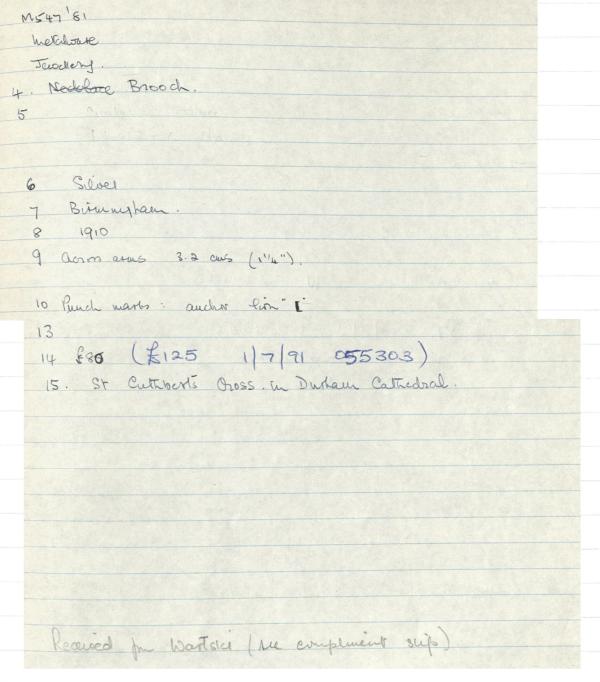 M547 '81
Metalware
Jewellery.
4. Necklace Brooch.
5
6 Silver
7 Birmingham.
8 1910
9 Across arms 3.2 cms (1¼").
10 Punch marks: anchor lion "L"
13
14 £80 (£125 1/7/91 055303)
15. St Cuthbert's Cross in Durham Cathedral.
Received from Wartski (see compliment slip)